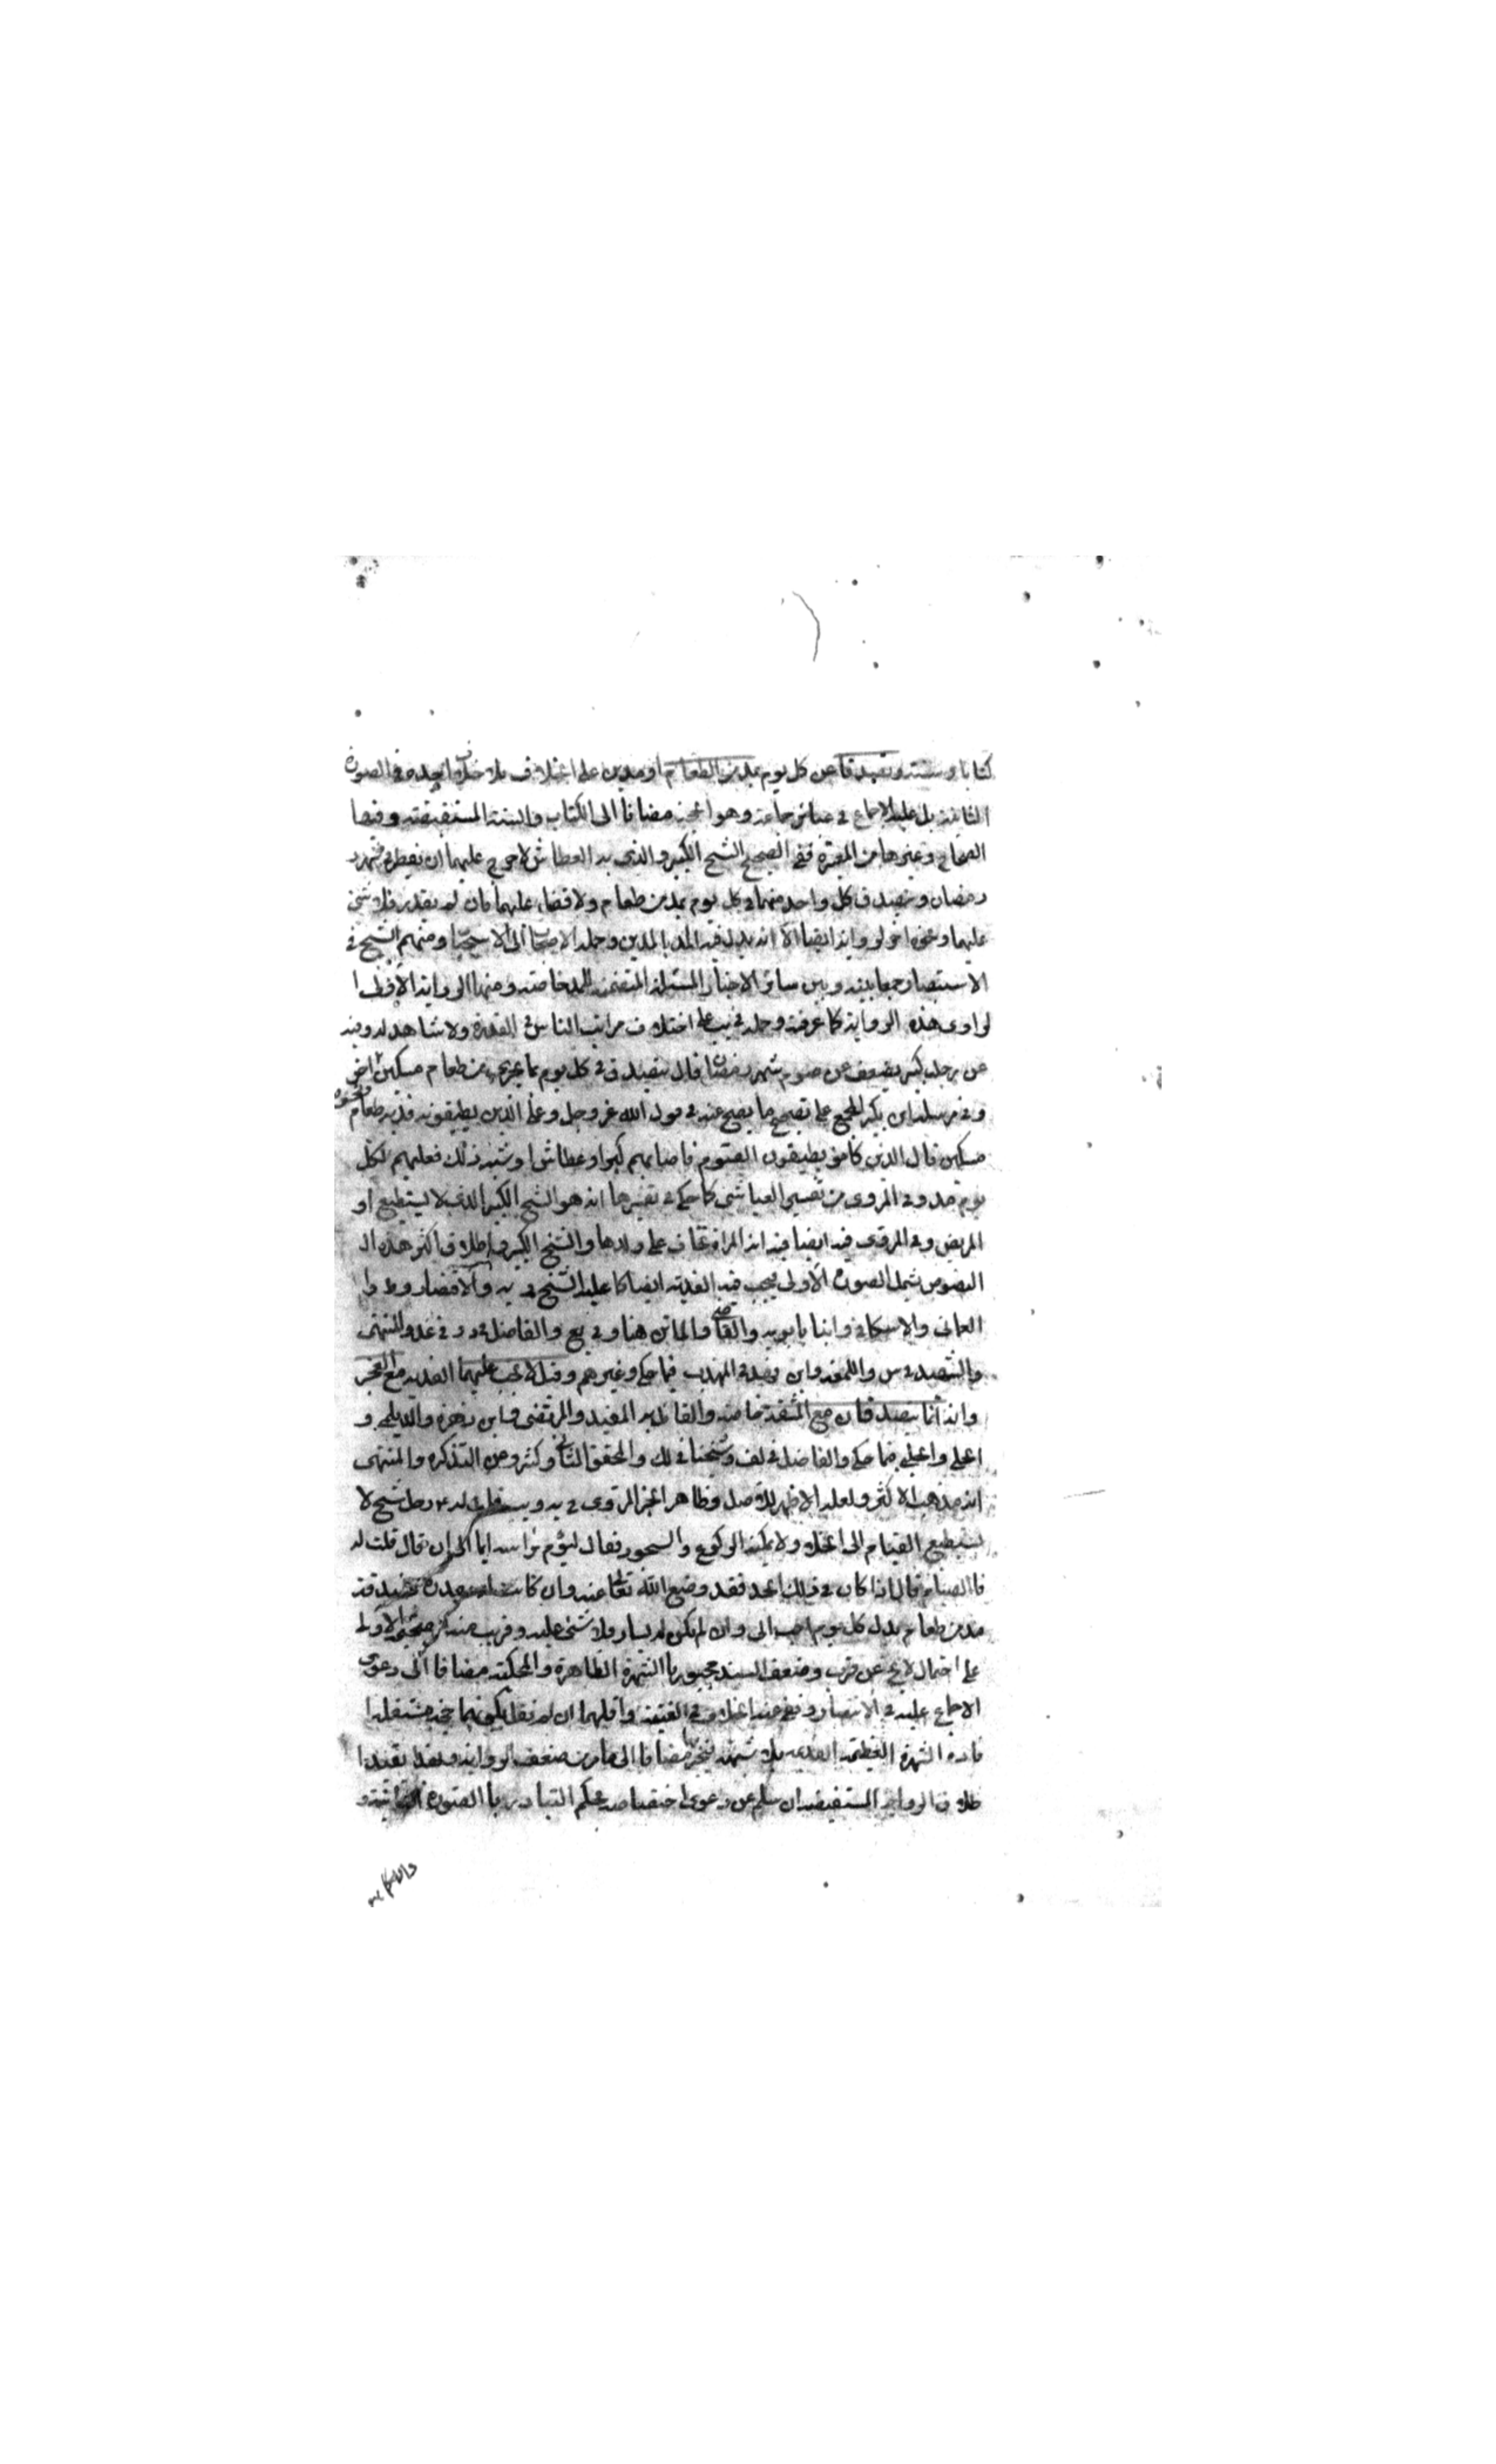 كتابا وسنة وتصدقا عن كل يوم بمد من الطعام او مدين على اختلاف بلا خلاف اجده في الصورة
الثانية بل عليه الاجماع في عبائر جماعة وهو الحجة مضافا الى الكتاب والسنة المستفيضة وفيها
الصحاح وغيرها من المعتبرة ففي الصحيح الشيخ الكبير والذي به العطاش لا حرج عليهما ان يفطرا في شهر
رمضان ويتصدق كل واحد منهما في كل يوم بمد من طعام ولا قضاء عليهما فان لم يقدرا فلا شئ
عليهما ونحوه اخر لروايه ايضا الا انه بدل فيه المد بالمدين وحمله الاصحاب الى الاستحباب ومنهم الشيخ في
الاستبصار جمعا بينه وبين سائر الاخبار المتضمنة للمد خاصة ومنها الرواية الاولى
لراوى هذه الرواية كما عرفته وحمله في يب على اختلاف مراتب الناس في القدرة ولا شاهد له وفيه
عن رجل كبير يضعف عن صوم شهر رمضان قال يتصدق في كل يوم بما يجزى من طعام مسكين
وفي مرسل ابن بكير المجمع على تصحيح ما يصح عنه في قول الله عز وجل وعلى الذين يطيقونه فدية طعام
مسكين قال الذين كانوا يطيقون الصوم فاصابهم كبر او عطاش او شبه ذلك فعليهم لكل
يوم مد وفي المروى من تفسير العياشي كما حكى في تفسيرها انه هو الشيخ الكبير الذي لا يستطيع او
المريض وفي المروى فيه ايضا فيه انه المراة تخاف على ولدها والشيخ الكبير واطلاق اكثر هذه ال
النصوص يشمل الصورة الاولى فيجب فيه الفدية ايضا كما عليه الشيخ في يه والاقتصاد وط وا
العماني والاسكافي وابنا بابويه والقاضي والماتن هنا وفي يع والفاضل في د و في عد والمنتهى
والشهيد في س واللمعة وابن فهد في المهذب فيما حكى وغيرهم وقيل لا يجب عليهما الفدية مع العجز
وانه انما يتصدقان مع المشقة خاصة والقائل به المفيد والمرتضى وابن زهرة والديلمي و
الحلي والحلبي فيما حكى والفاضل في لف وشيخنا في لك والمحقق الثاني وكثر وعن التذكرة والمنتهى
انه مذهب الاكثر ولعله الاظهر للاصل وظاهر الخبر المروى في يه ويب قلت له رجل شيخ لا
يستطيع القيام الى الخلاء ولا يمكنه الركوع والسجود فقال ليؤم براسه ايماء الى ان قال قلت له
فالصيام قال اذا كان في ذلك الحد فقد وضع الله تعالى عنه وان كانت له مقدرة فصدقة
مد من طعام بدل كل يوم احب الى وان لم يكن له يسار فلا شئ عليه وقريب منه
على احتمال لايح عن قرب وضعف السند مجبور با الشهرة الظاهرة والمحكية مضافا الى دعوى
الاجماع عليه في الانتصار ونفى عنه الخلاف في الغنية واقلهما ان لم نقل بكونهما حجة مستقلة ا
فادة الشهرة العظيمة القديمة بلا شبهة مضافا الى ما مر من ضعف الرواية وبهذا تقيد ا
طلاق الروايات المستفيضة ان سلم عن دعوى اختصاصه بحكم التبادر با الصورة الثانية و